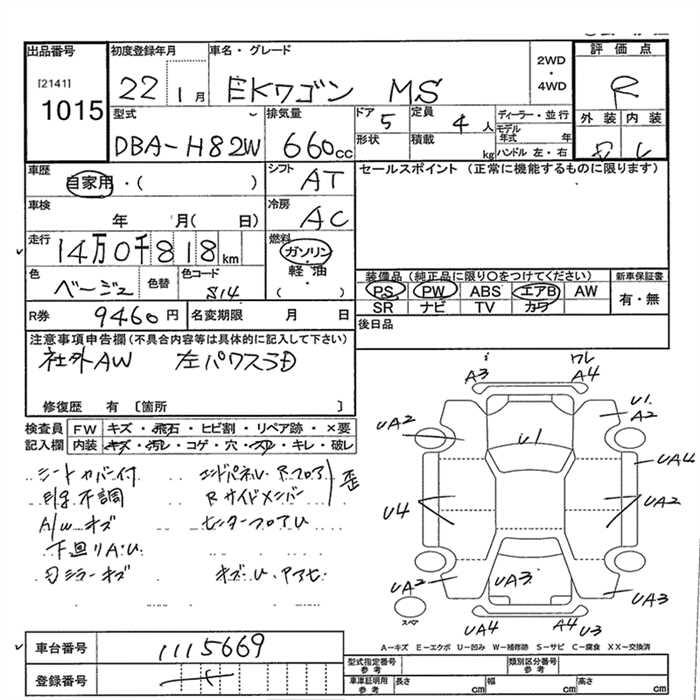 出品番号
[2141]
1015
初度登録年月
22 1月
車名・グレード
EKワゴン MS
2WD
・
4WD
評価点
R
型式
DBA-H82W
排気量
660cc
ドア 5
定員 4人
形状
積載 kg
ディーラー・並行
モデル年式 年
ハンドル 左・右
外装 内装
車歴
自家用・( )
シフト
AT
セールスポイント (正常に機能するものに限ります)
車検
年 月( 日)
冷房
AC
走行
14万0千818km
燃料
ガソリン
軽・油
( )
色
ベージュ
色替
色コード
S14
装備品 (純正品に限り○をつけてください)
PS PW ABS エアB AW
SR ナビ TV カワ
新車保証書
有・無
R券 9460円
名変期限 月 日
後日品
注意事項申告欄(不具合内容等は具体的に記入して下さい)
社外AW 左パワスラD
修復歴 有 [箇所 ]
検査員記入欄
FW キズ・飛石・ヒビ割・リペア跡・×要
内装 キズ・汚レ・コゲ・穴・スレ・キレ・破レ
シートカバー付 エンドパネルU Rフロア
Rサイドメンバー 歪
A/W キズ センターフロアU
下廻りA、U
ミラーキズ
A3 A4
U1
A2
UA2
U1
UA4
U4
UA2
UA2
UA3
UA3
スペア
UA4 A4 U3
A-キズ E-エクボ U-凹み W-補修跡 S-サビ C-腐食 XX-交換済
車台番号 1115669
登録番号
型式指定番号 参考
類別区分番号 参考
車庫証明用 参考
長さ cm
幅 cm
高さ cm